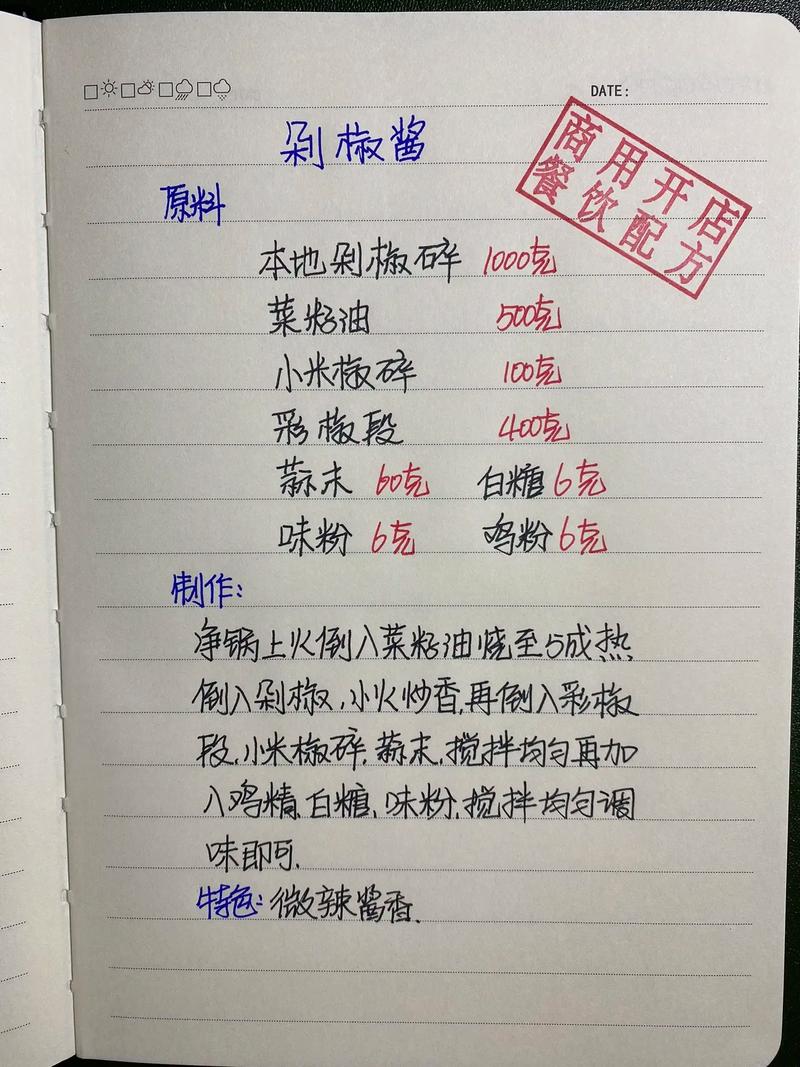 DATE:
剁椒酱
商用开店
餐饮配方
原料
本地剁椒碎 1000克
菜籽油 500克
小米椒碎 100克
彩椒段 400克
蒜末 60克 白糖 6克
味粉 6克 鸡粉 6克
制作:
净锅上火倒入菜籽油烧至5成热
倒入剁椒,小火炒香,再倒入彩椒
段,小米椒碎,蒜末,搅拌均匀再加
入鸡精,白糖,味粉,搅拌均匀调
味即可.
特色:微辣酱香.